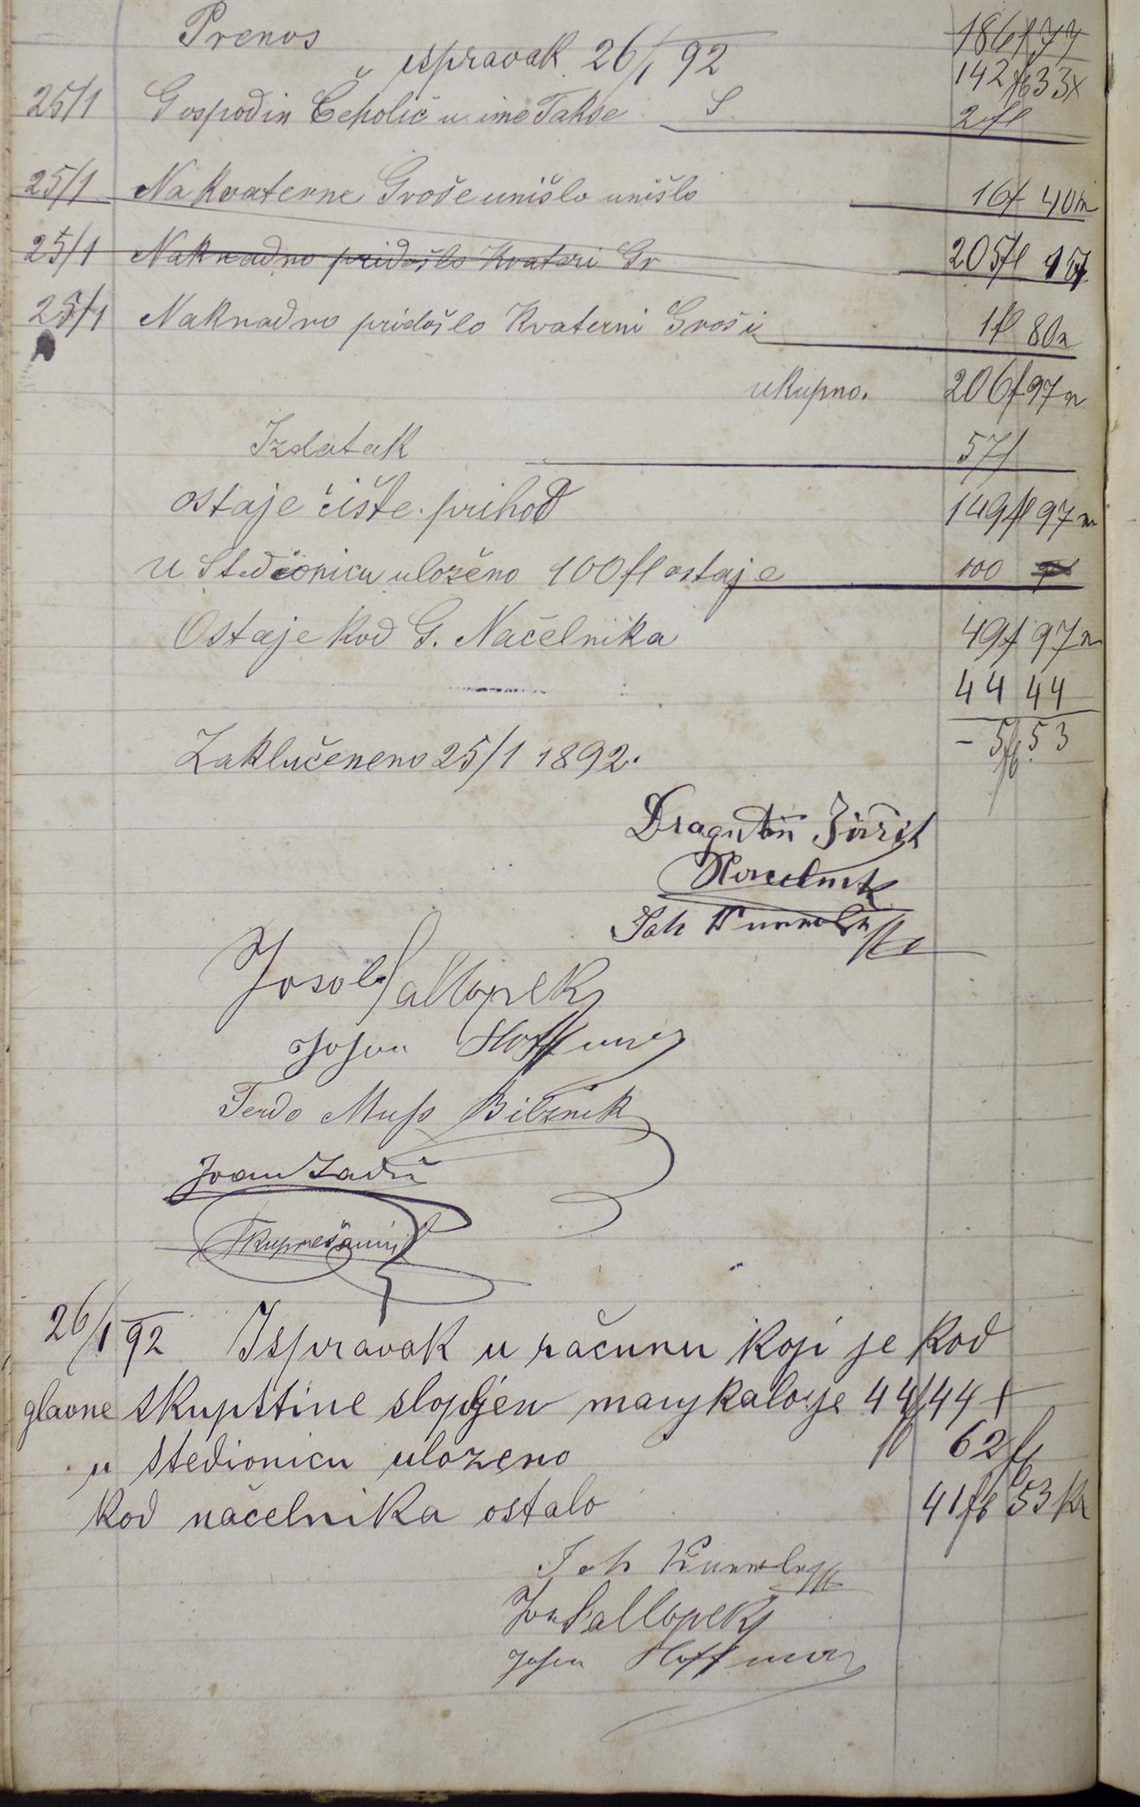 Prenos 186f 77
ispravak 26/1 92 142 fl 33x
25/1 Gospodin Čeholić u ime Takse S 2 fl
25/1 Na Kvaterne Groše unišlo unišlo 16f 40n
25/1 Naknadno pridošlo Kvateri Gr 205fl 17
25/1 Naknadno pridošlo Kvaterni Groši 1f 80n
ukupno. 206f 97n
Izdatak 57f
ostaje čište prihod 149fl 97n
u Stedionicu uloženo 100 fl ostaje 100
Ostaje kod G. Načelnika 49f 97n
44 44
- 5 fl 53
Zaključeneno 25/1 1892.
Dragutin
Joh
Josef Sallopek
Johan Hoffman
Ferdo Muhs Bilžnik
Ivan
26/1 92 Ispravak u računu koji je kod
glavne skupštine slopljen manjkalo je 44 fl 44 x
u stedionicu ulozeno 62 fl
kod načelnika ostalo 41 fl 53 kr
Joh
Jos Sallopek
Johan Hoffman